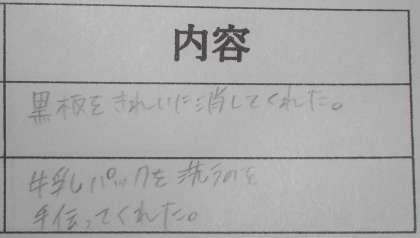 内容
黒板をきれいに消してくれた。
牛乳パックを洗うのを
手伝ってくれた。